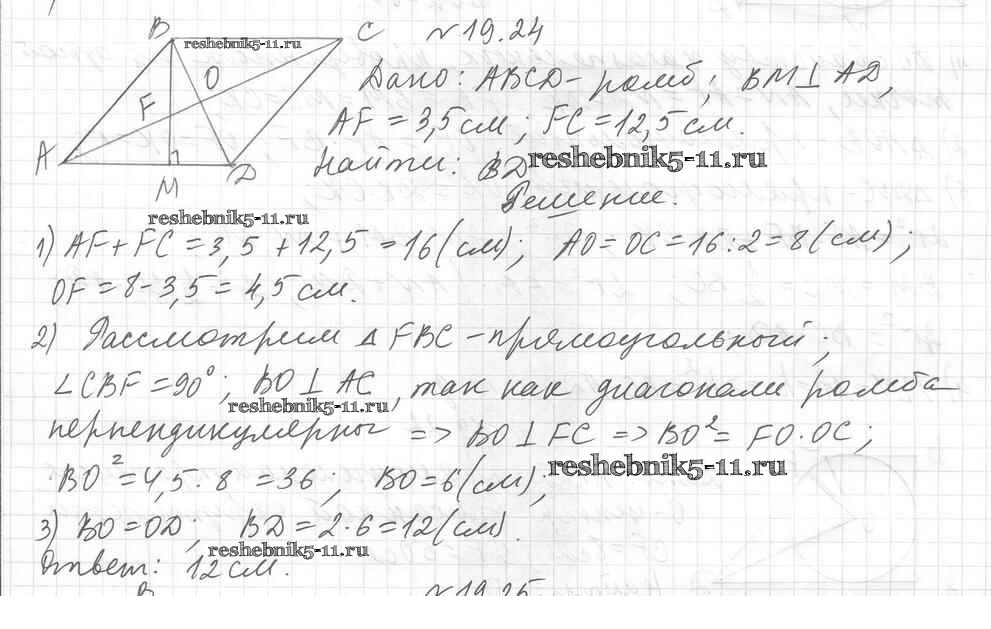 №19.24
B C
reshebnik5-11.ru
O
F
A
M D
Дано: ABCD – ромб; BM⊥AD,
AF = 3,5 см; FC = 12,5 см.
Найти: BD
reshebnik5-11.ru
Решение.
reshebnik5-11.ru
1) AF + FC = 3,5 + 12,5 = 16 (см); AO = OC = 16 : 2 = 8 (см);
OF = 8 - 3,5 = 4,5 см.
2) Рассмотрим △ FBC – прямоугольный;
∠CBF = 90°; BO ⊥ AC, так как диагонали ромба
reshebnik5-11.ru
перпендикулярны => BO ⊥ FC => BO² = FO·OC;
BO² = 4,5 · 8 = 36; BO = 6 (см);
reshebnik5-11.ru
3) BO = OD; BD = 2·6 = 12 (см).
reshebnik5-11.ru
Ответ: 12 см.
B №19.25